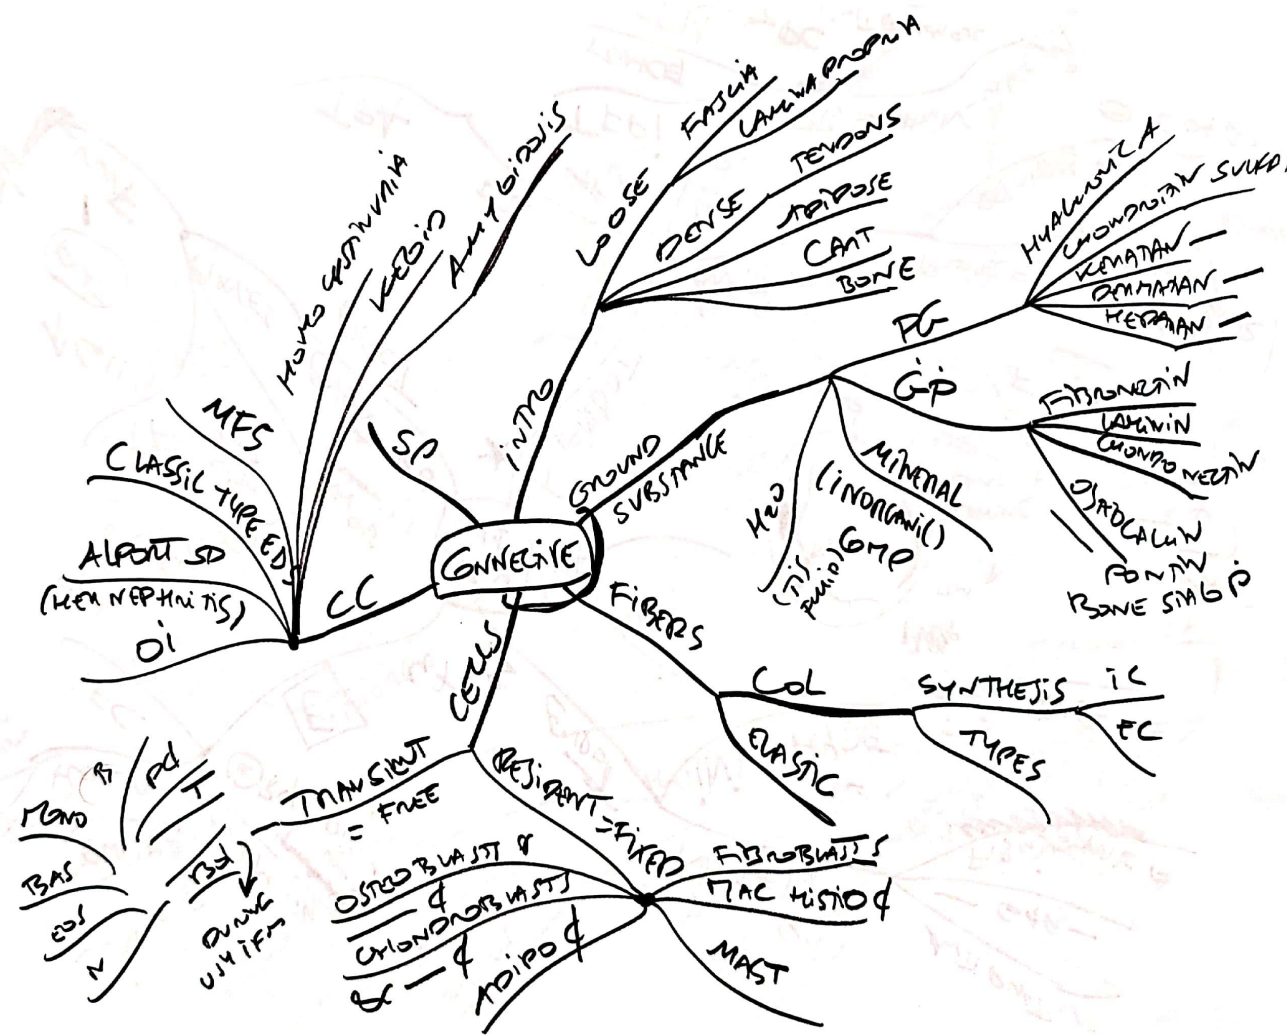 CONNECTIVE
INTRO
LOOSE
FASCIA
LAMINA PROPRIA
DENSE
TENDONS
ADIPOSE
CART
BONE
GROUND
SUBSTANCE
PG
HYALURONIZA
CHONDROITIN SULFA
KERATAN —
DERMATAN —
HEPARAN —
GP
FIBRONECTIN
LAMININ
CHONDRONECTIN
OSTEOCALCIN
PONTIN
BONE SIALO P
MINERAL
(INORGANIC)
COMP
H2O
(TIS
FLUID)
FIBERS
COL
SYNTHESIS
IC
EC
TYPES
ELASTIC
CELLS
RESIDENT = FIXED
FIBROBLASTS
MAC HISTIO ¢
MAST
ADIPO ¢
CHONDROBLASTS
& — ¢
OSTEOBLAST &
— ¢
TRANSIENT
= FREE
T
B
MONO
BAS
EOS
N
DURING
CC
OI
ALPORT SD
(HER NEPHRITIS)
CLASSIC TYPE EDS
MFS
HOMOCYSTINURIA
KELOID
AMYLOIDOSIS
SP